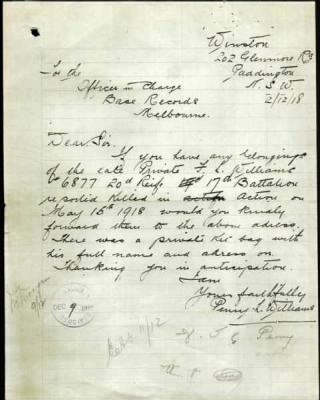 Winston
202 Glenmore Rd
Paddington
N.S.W.
2/12/18
To the
Officer in Charge
Base Records
Melbourne.
Dear Sir.
If you have any belongings
of the late Private F. L. Williams
6877 20th Reifs 17th Battalion
reported killed in action Action on
May 15th 1918 would you kindly
forward them to the above adress.
There was a private Kit bag with
his full name and adress on.
Thanking you in anticipation.
I am
Yours faithfully
Penny L. Williams
DEC 9
11/12
Penny